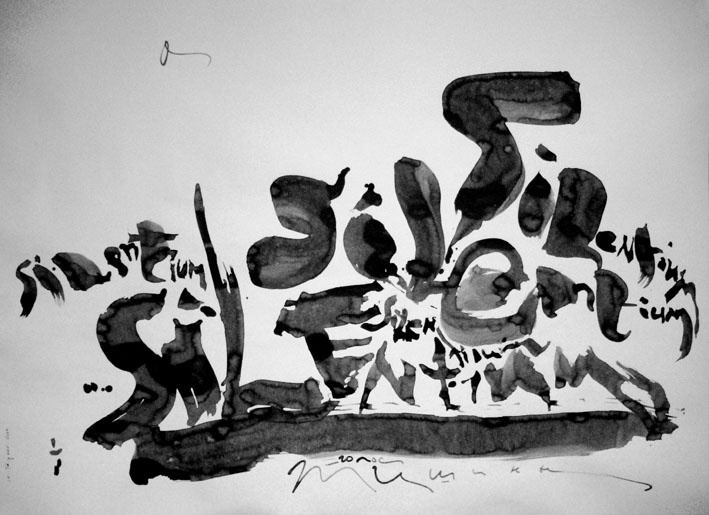 SiLEntium
silentium
SiLEntium
SiLENtium
silentium